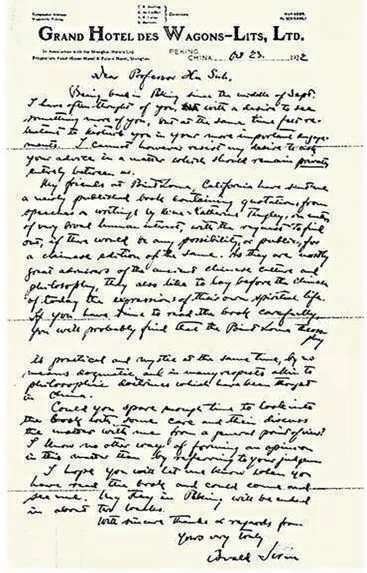 GRAND HOTEL DES WAGONS-LITS, LTD.
PEKING
CHINA Oct 23. 1922
Dear Professor Hu Shih,
Being back in Peking since the middle of Sept.
I have often thought of you, with a desire to see
something more of you, but at the same time felt re-
luctant to disturb you in your more important engage-
ments. I cannot however resist my desire to ask
your advice in a matter which should remain private
entirely between us.
My friends at Point Loma, California have sent me
a newly published book containing quotations from
speeches & writings by Katherine Tingley, on matters
of very broad human interest, with the request to find
out, if there would be any possibility, or public, for
a Chinese edition of the same. As they are mostly
great admirers of the ancient Chinese culture and
philosophy, they also like to lay before the Chinese
of today the expressions of their own spiritual life.
If you have time to read the book carefully,
you will probably find that the Point Loma theoso-
phy
is practical and mystic at the same time, by no
means dogmatic, and in many respects akin to
philosophic doctrines which have been thought
in China.
Could you spare enough time to look into
the book with some care and then discuss
the matter with me from a general point of view?
I know no other way of forming an opinion
in this matter than by referring to your judgment
I hope you will let me know when you
have read the book and could come and
see me. My stay in Peking will be ended
in about two weeks.
With sincere thanks & regards from
Yours very truly
Osvald Sirén